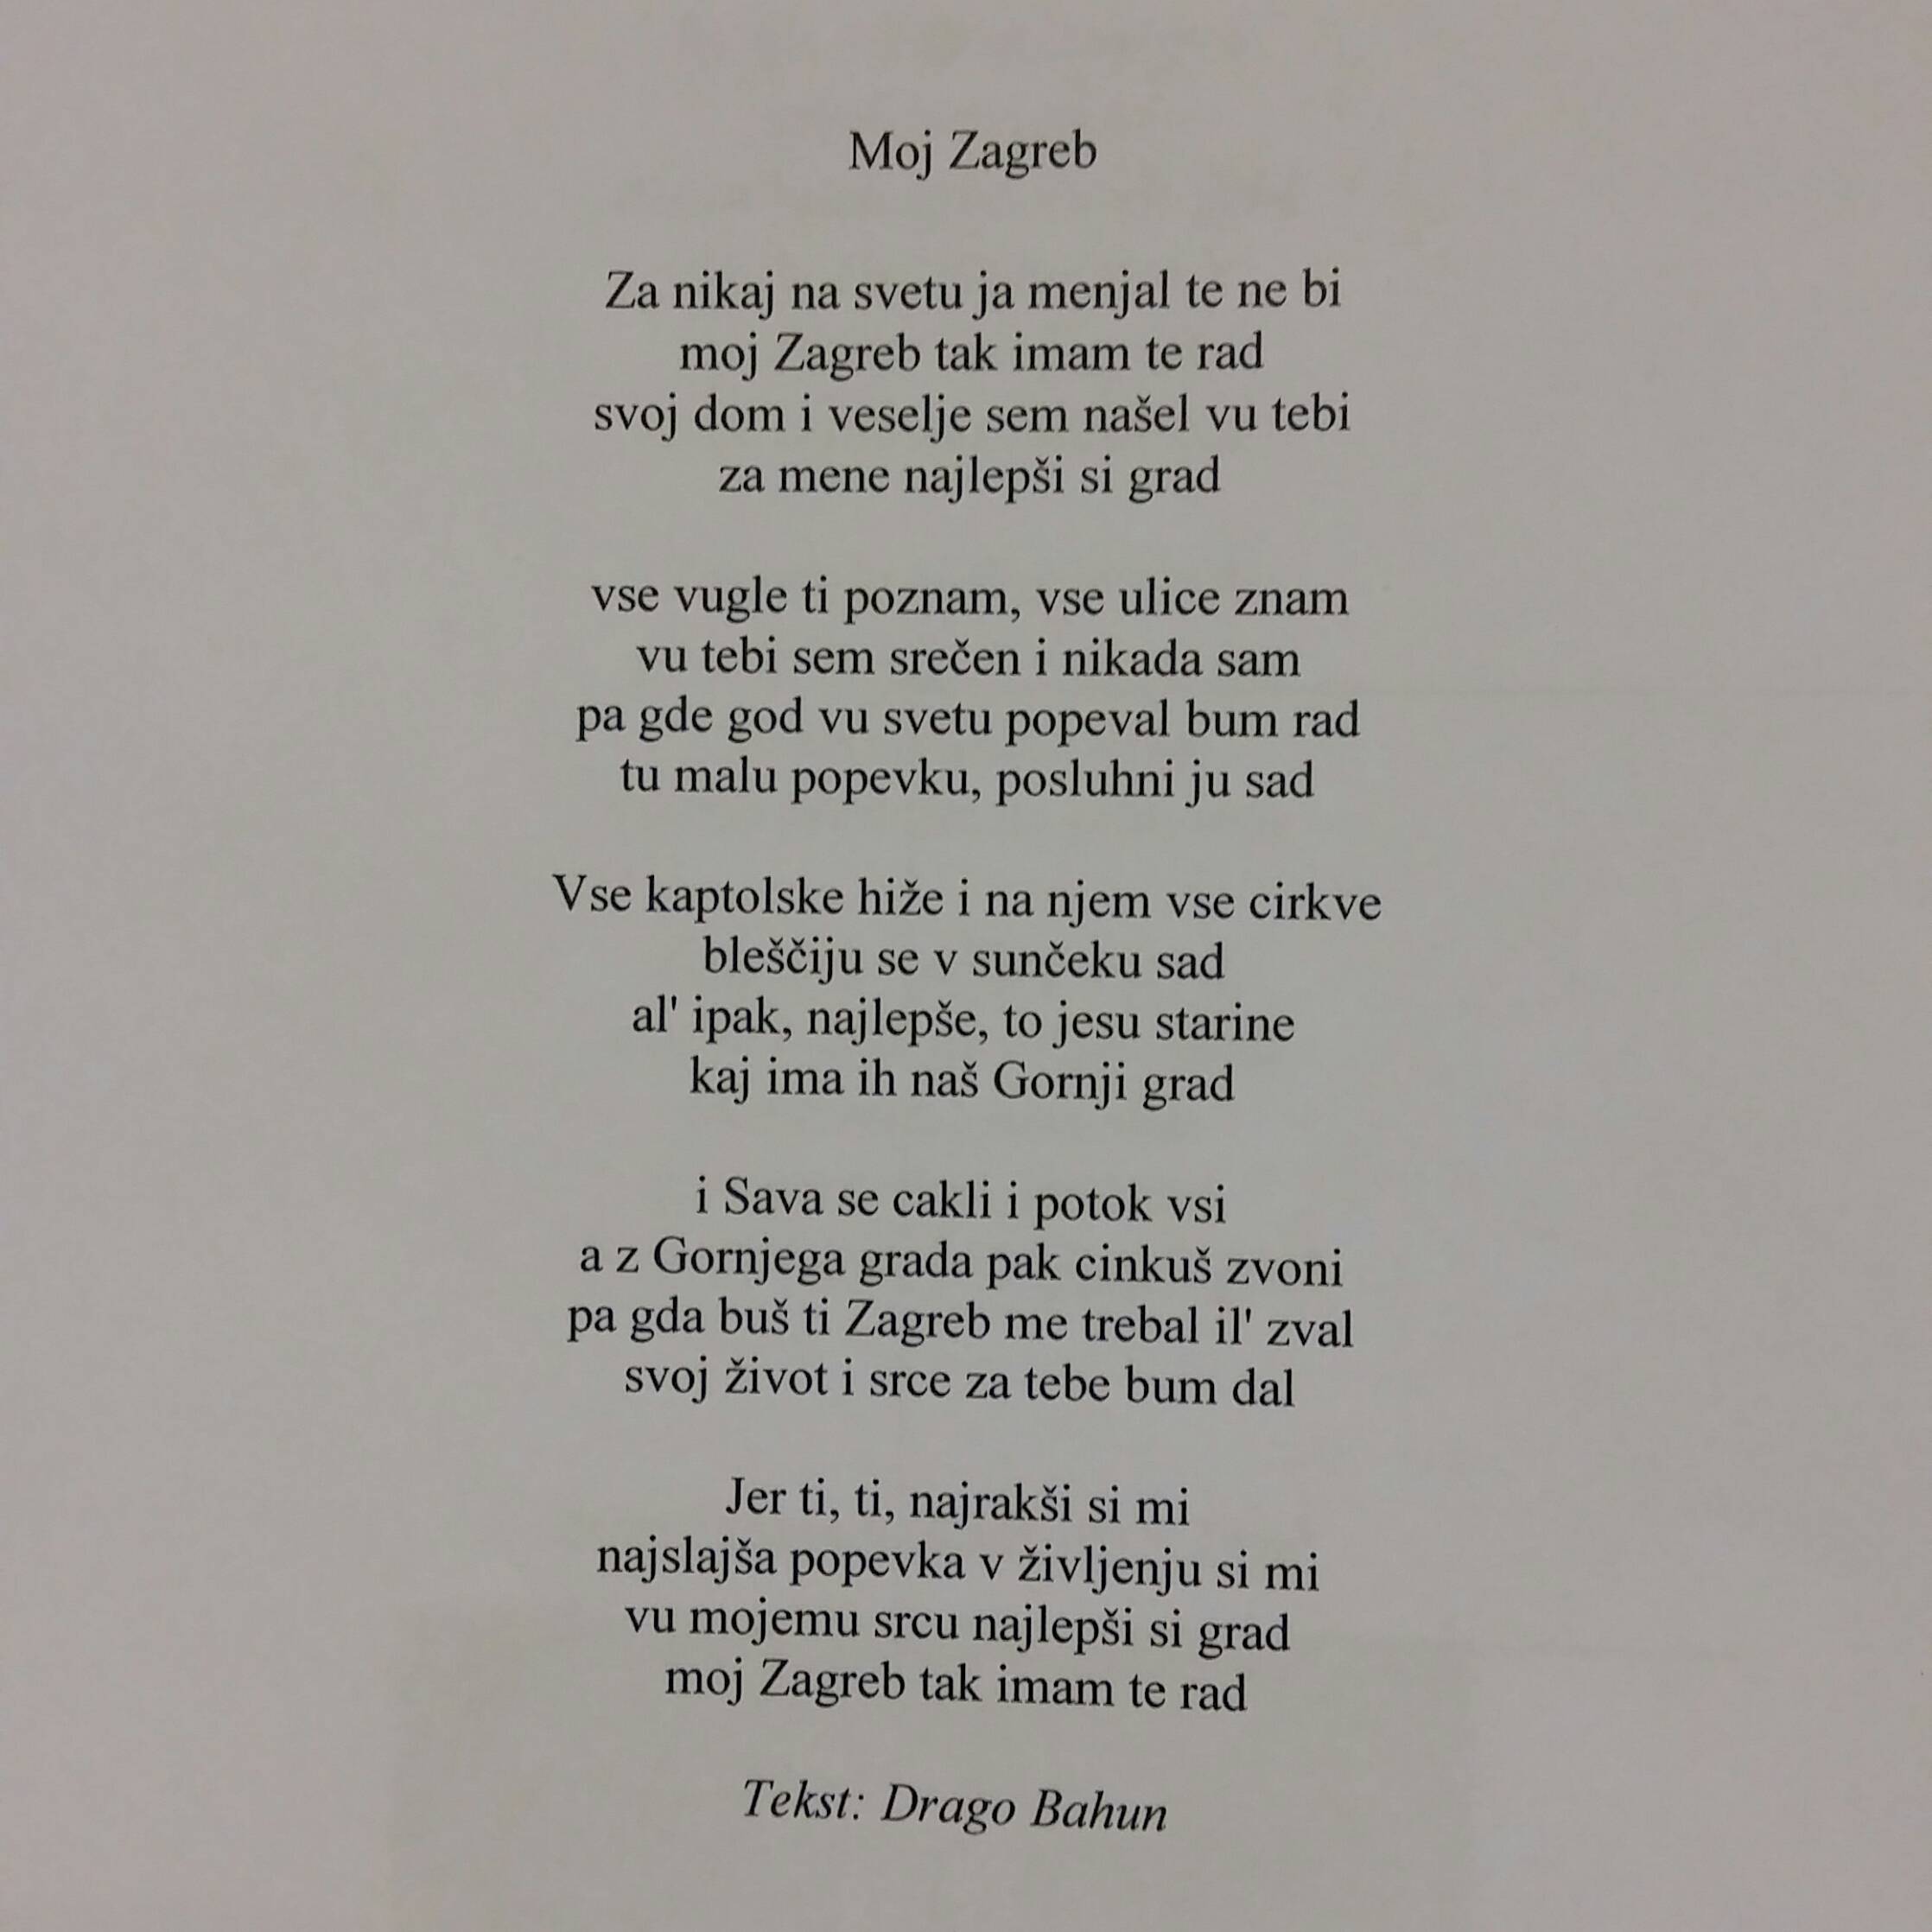 Moj Zagreb
Za nikaj na svetu ja menjal te ne bi
moj Zagreb tak imam te rad
svoj dom i veselje sem našel vu tebi
za mene najlepši si grad
vse vugle ti poznam, vse ulice znam
vu tebi sem srečen i nikada sam
pa gde god vu svetu popeval bum rad
tu malu popevku, posluhni ju sad
Vse kaptolske hiže i na njem vse cirkve
bleščiju se v sunčeku sad
al' ipak, najlepše, to jesu starine
kaj ima ih naš Gornji grad
i Sava se cakli i potok vsi
a z Gornjega grada pak cinkuš zvoni
pa gda buš ti Zagreb me trebal il' zval
svoj život i srce za tebe bum dal
Jer ti, ti, najrakši si mi
najslajša popevka v življenju si mi
vu mojemu srcu najlepši si grad
moj Zagreb tak imam te rad
Tekst: Drago Bahun